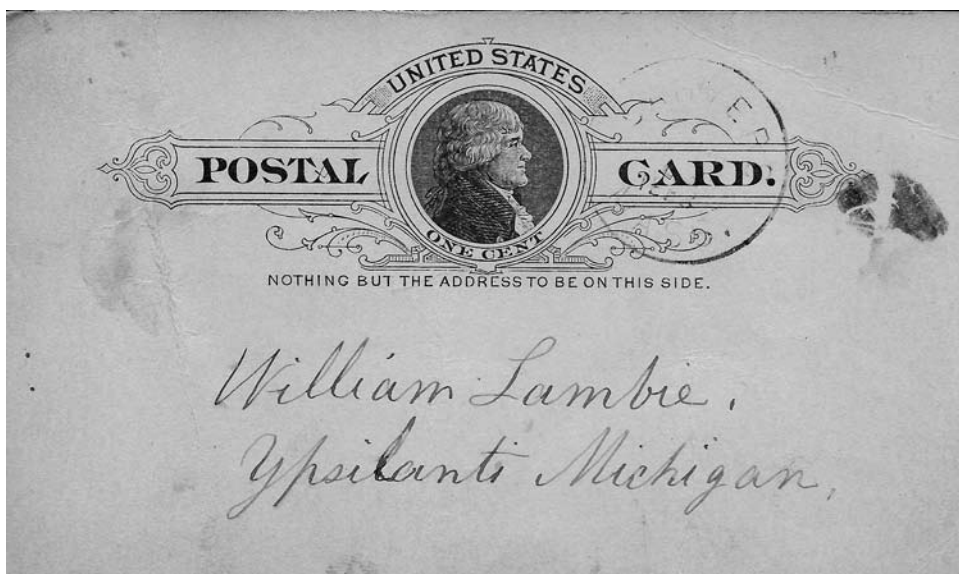 UNITED STATES
POSTAL CARD.
ONE CENT
NOTHING BUT THE ADDRESS TO BE ON THIS SIDE.
William Lambie.
Ypsilanti Michigan.